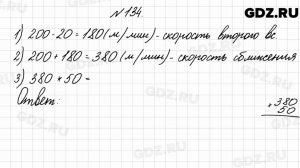 GDZ.RU
№ 134.
1) 200-20=180(м/мин)-скорость второго вс.
2) 200+180=380(м/мин)-скорость сближения
3) 380*50=
Ответ:
× 380
50
GDZ.RU